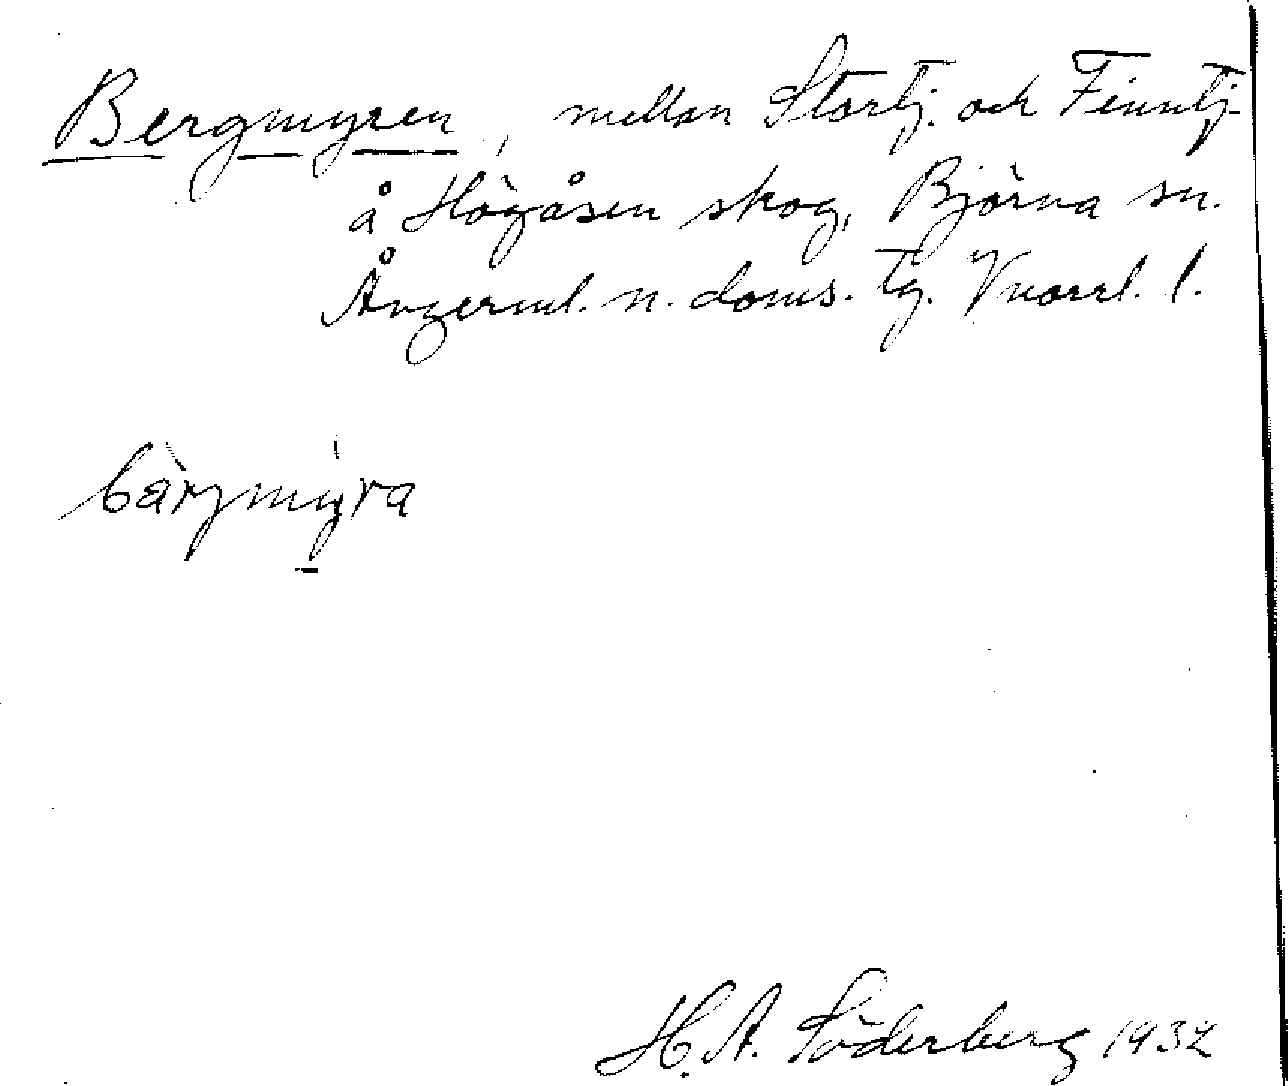 Bergmyren, mellan Stortj. och Finntj.
å Högåsen skog, Björna sn.
Ångerml. n. doms. tg. Vnorrl. l.
bàrjmỳra
H. A. Söderberg 1932